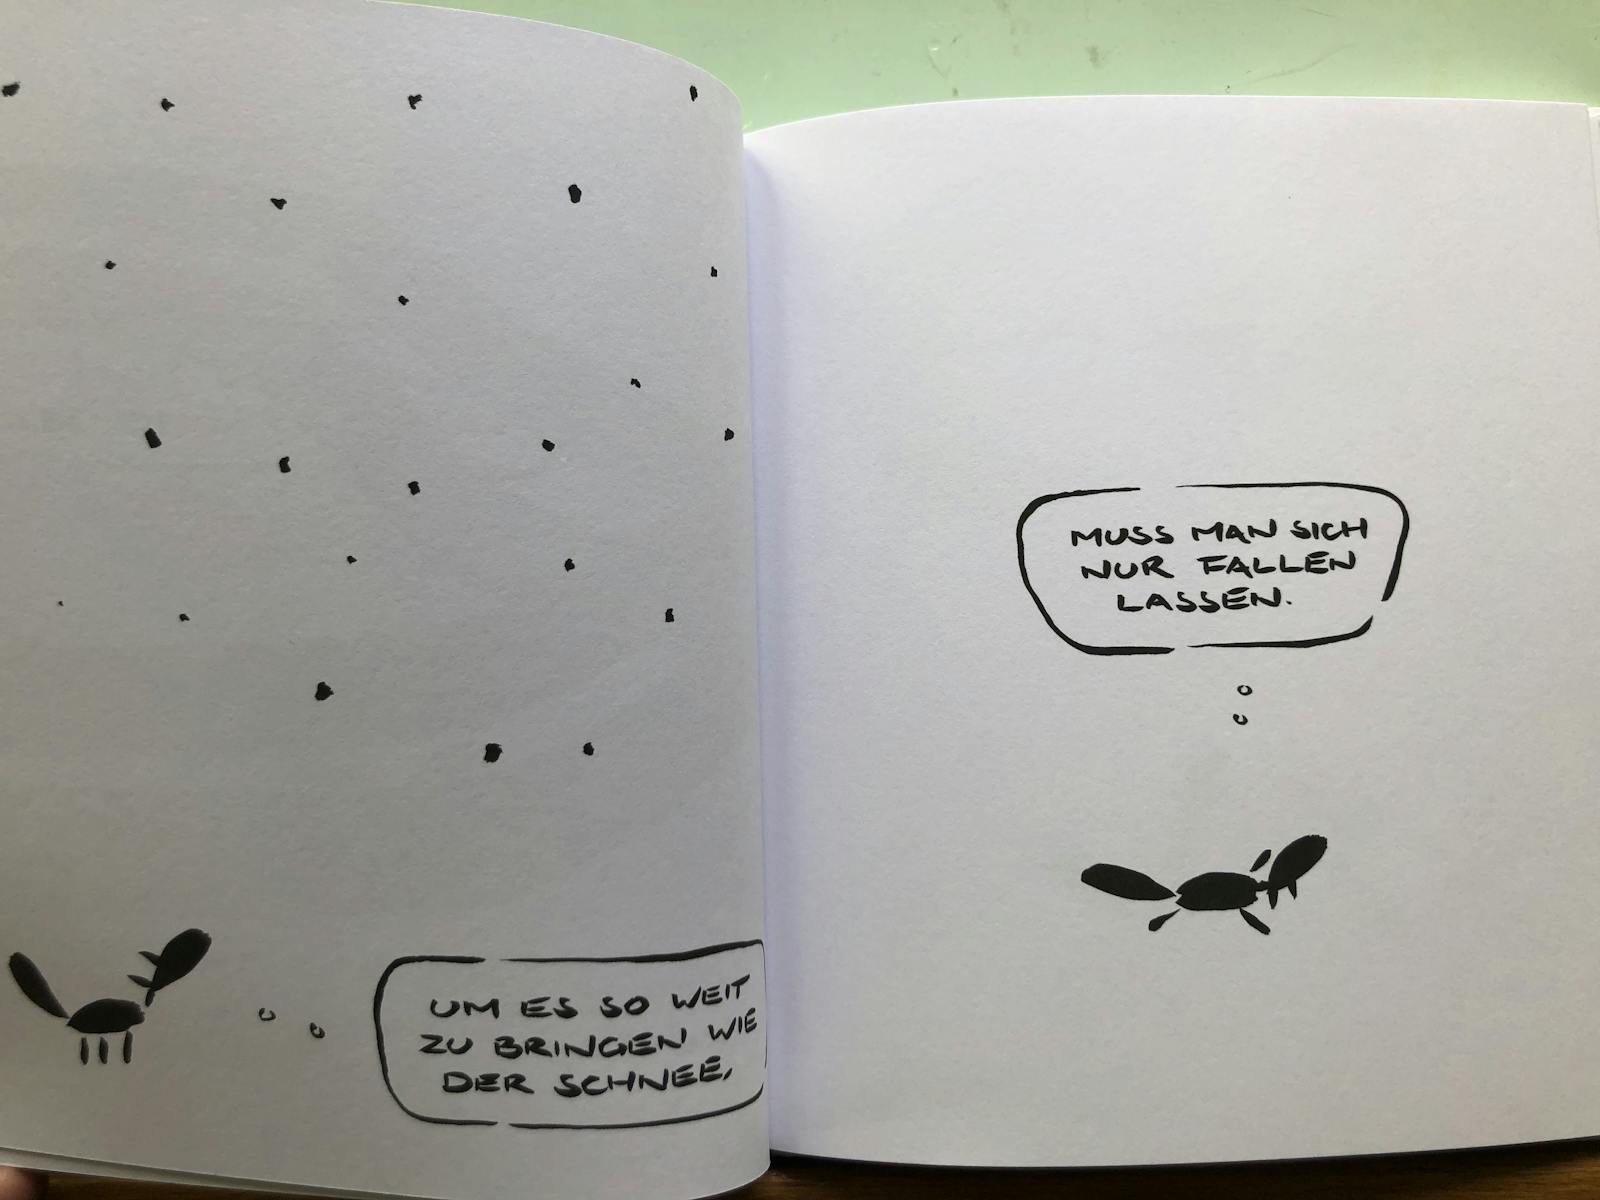 UM ES SO WEIT
ZU BRINGEN WIE
DER SCHNEE,
MUSS MAN SICH
NUR FALLEN
LASSEN.